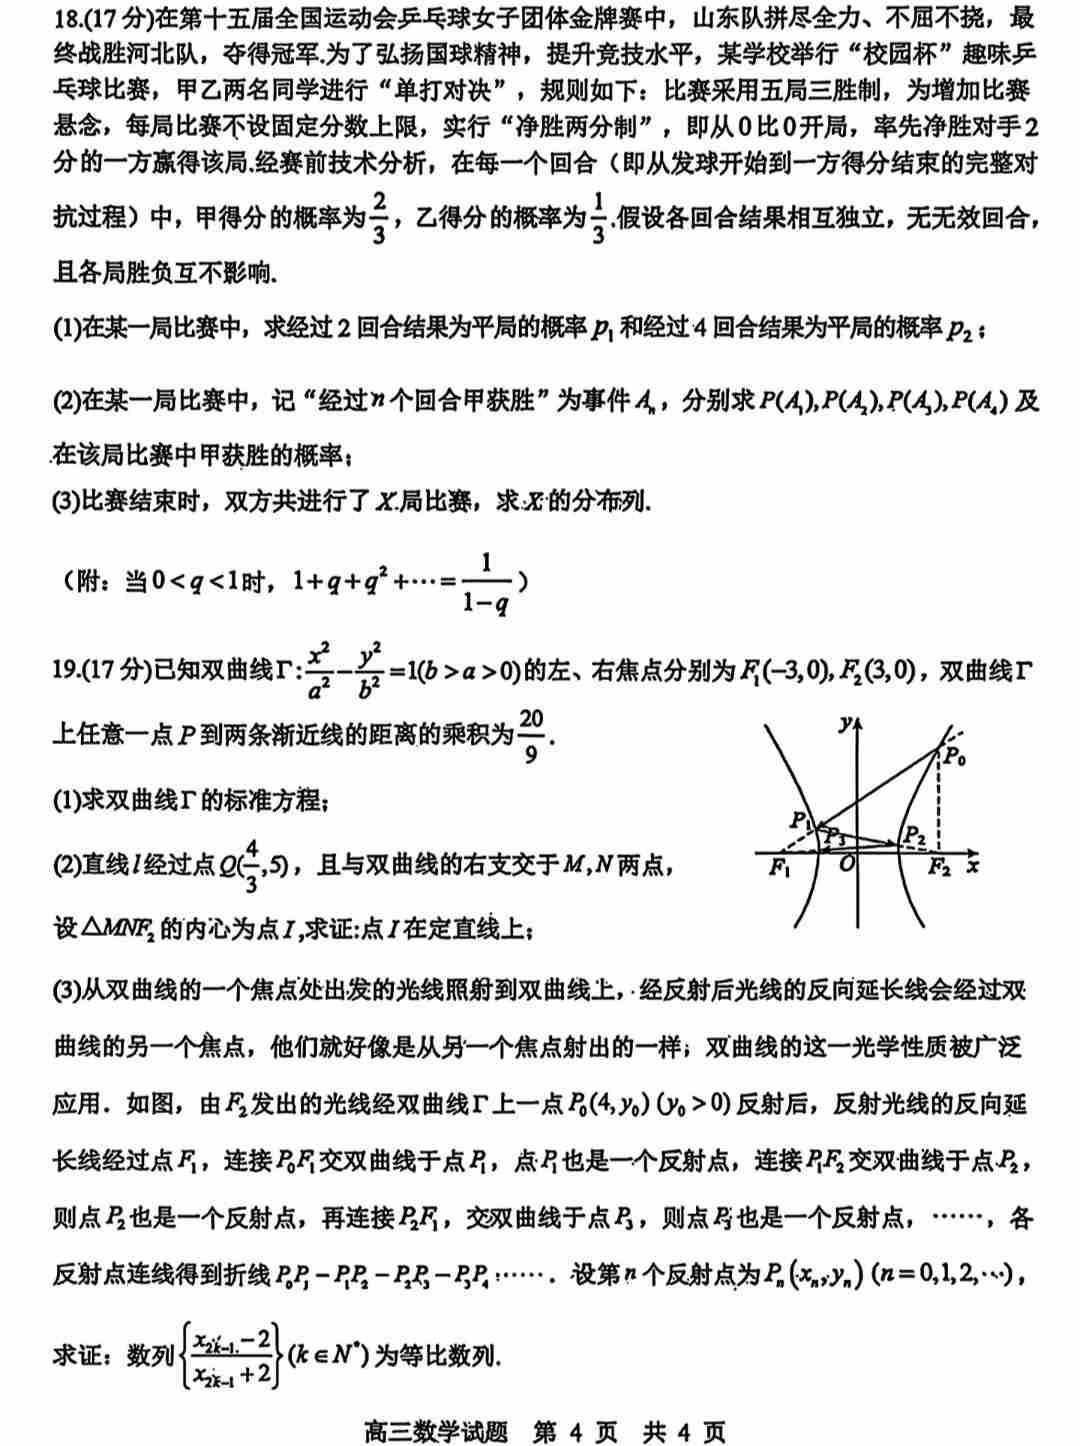 18.(17 分)在第十五届全国运动会乒乓球女子团体金牌赛中，山东队拼尽全力、不屈不挠，最
终战胜河北队，夺得冠军.为了弘扬国球精神，提升竞技水平，某学校举行“校园杯”趣味乒
乓球比赛，甲乙两名同学进行“单打对决”，规则如下：比赛采用五局三胜制，为增加比赛
悬念，每局比赛不设固定分数上限，实行“净胜两分制”，即从0比0开局，率先净胜对手2
分的一方赢得该局.经赛前技术分析，在每一个回合（即从发球开始到一方得分结束的完整对
抗过程）中，甲得分的概率为2/3，乙得分的概率为1/3.假设各回合结果相互独立，无无效回合，
且各局胜负互不影响.
(1)在某一局比赛中，求经过2回合结果为平局的概率p₁和经过4回合结果为平局的概率p₂；
(2)在某一局比赛中，记“经过n个回合甲获胜”为事件Aₙ，分别求P(A₁),P(A₂),P(A₃),P(A₄)及
在该局比赛中甲获胜的概率；
(3)比赛结束时，双方共进行了X局比赛，求X的分布列.
（附：当0<q<1时，1+q+q²+⋯=1/(1−q)）
19.(17 分)已知双曲线Γ:x²/a²−y²/b²=1(b>a>0)的左、右焦点分别为F₁(−3,0),F₂(3,0)，双曲线Γ
上任意一点P到两条渐近线的距离的乘积为20/9.
(1)求双曲线Γ的标准方程；
(2)直线l经过点Q(4/3,5)，且与双曲线的右支交于M,N两点，
设△MNF₂的内心为点I,求证:点I在定直线上；
y
P₀
P₁
P₃
P₂
F₁
O
F₂
x
(3)从双曲线的一个焦点处出发的光线照射到双曲线上，经反射后光线的反向延长线会经过双
曲线的另一个焦点，他们就好像是从另一个焦点射出的一样；双曲线的这一光学性质被广泛
应用．如图，由F₂发出的光线经双曲线Γ上一点P₀(4,y₀)(y₀>0)反射后，反射光线的反向延
长线经过点F₁，连接P₀F₁交双曲线于点P₁，点P₁也是一个反射点，连接P₁F₂交双曲线于点P₂，
则点P₂也是一个反射点，再连接P₂F₁，交双曲线于点P₃，则点P₃也是一个反射点，……，各
反射点连线得到折线P₀P₁−P₁P₂−P₂P₃−P₃P₄……．设第n个反射点为Pₙ(xₙ,yₙ)(n=0,1,2,⋯)，
求证：数列{(x₂ₖ₋₁−2)/(x₂ₖ₋₁+2)}(k∈N*)为等比数列.
高三数学试题 第 4 页 共 4 页